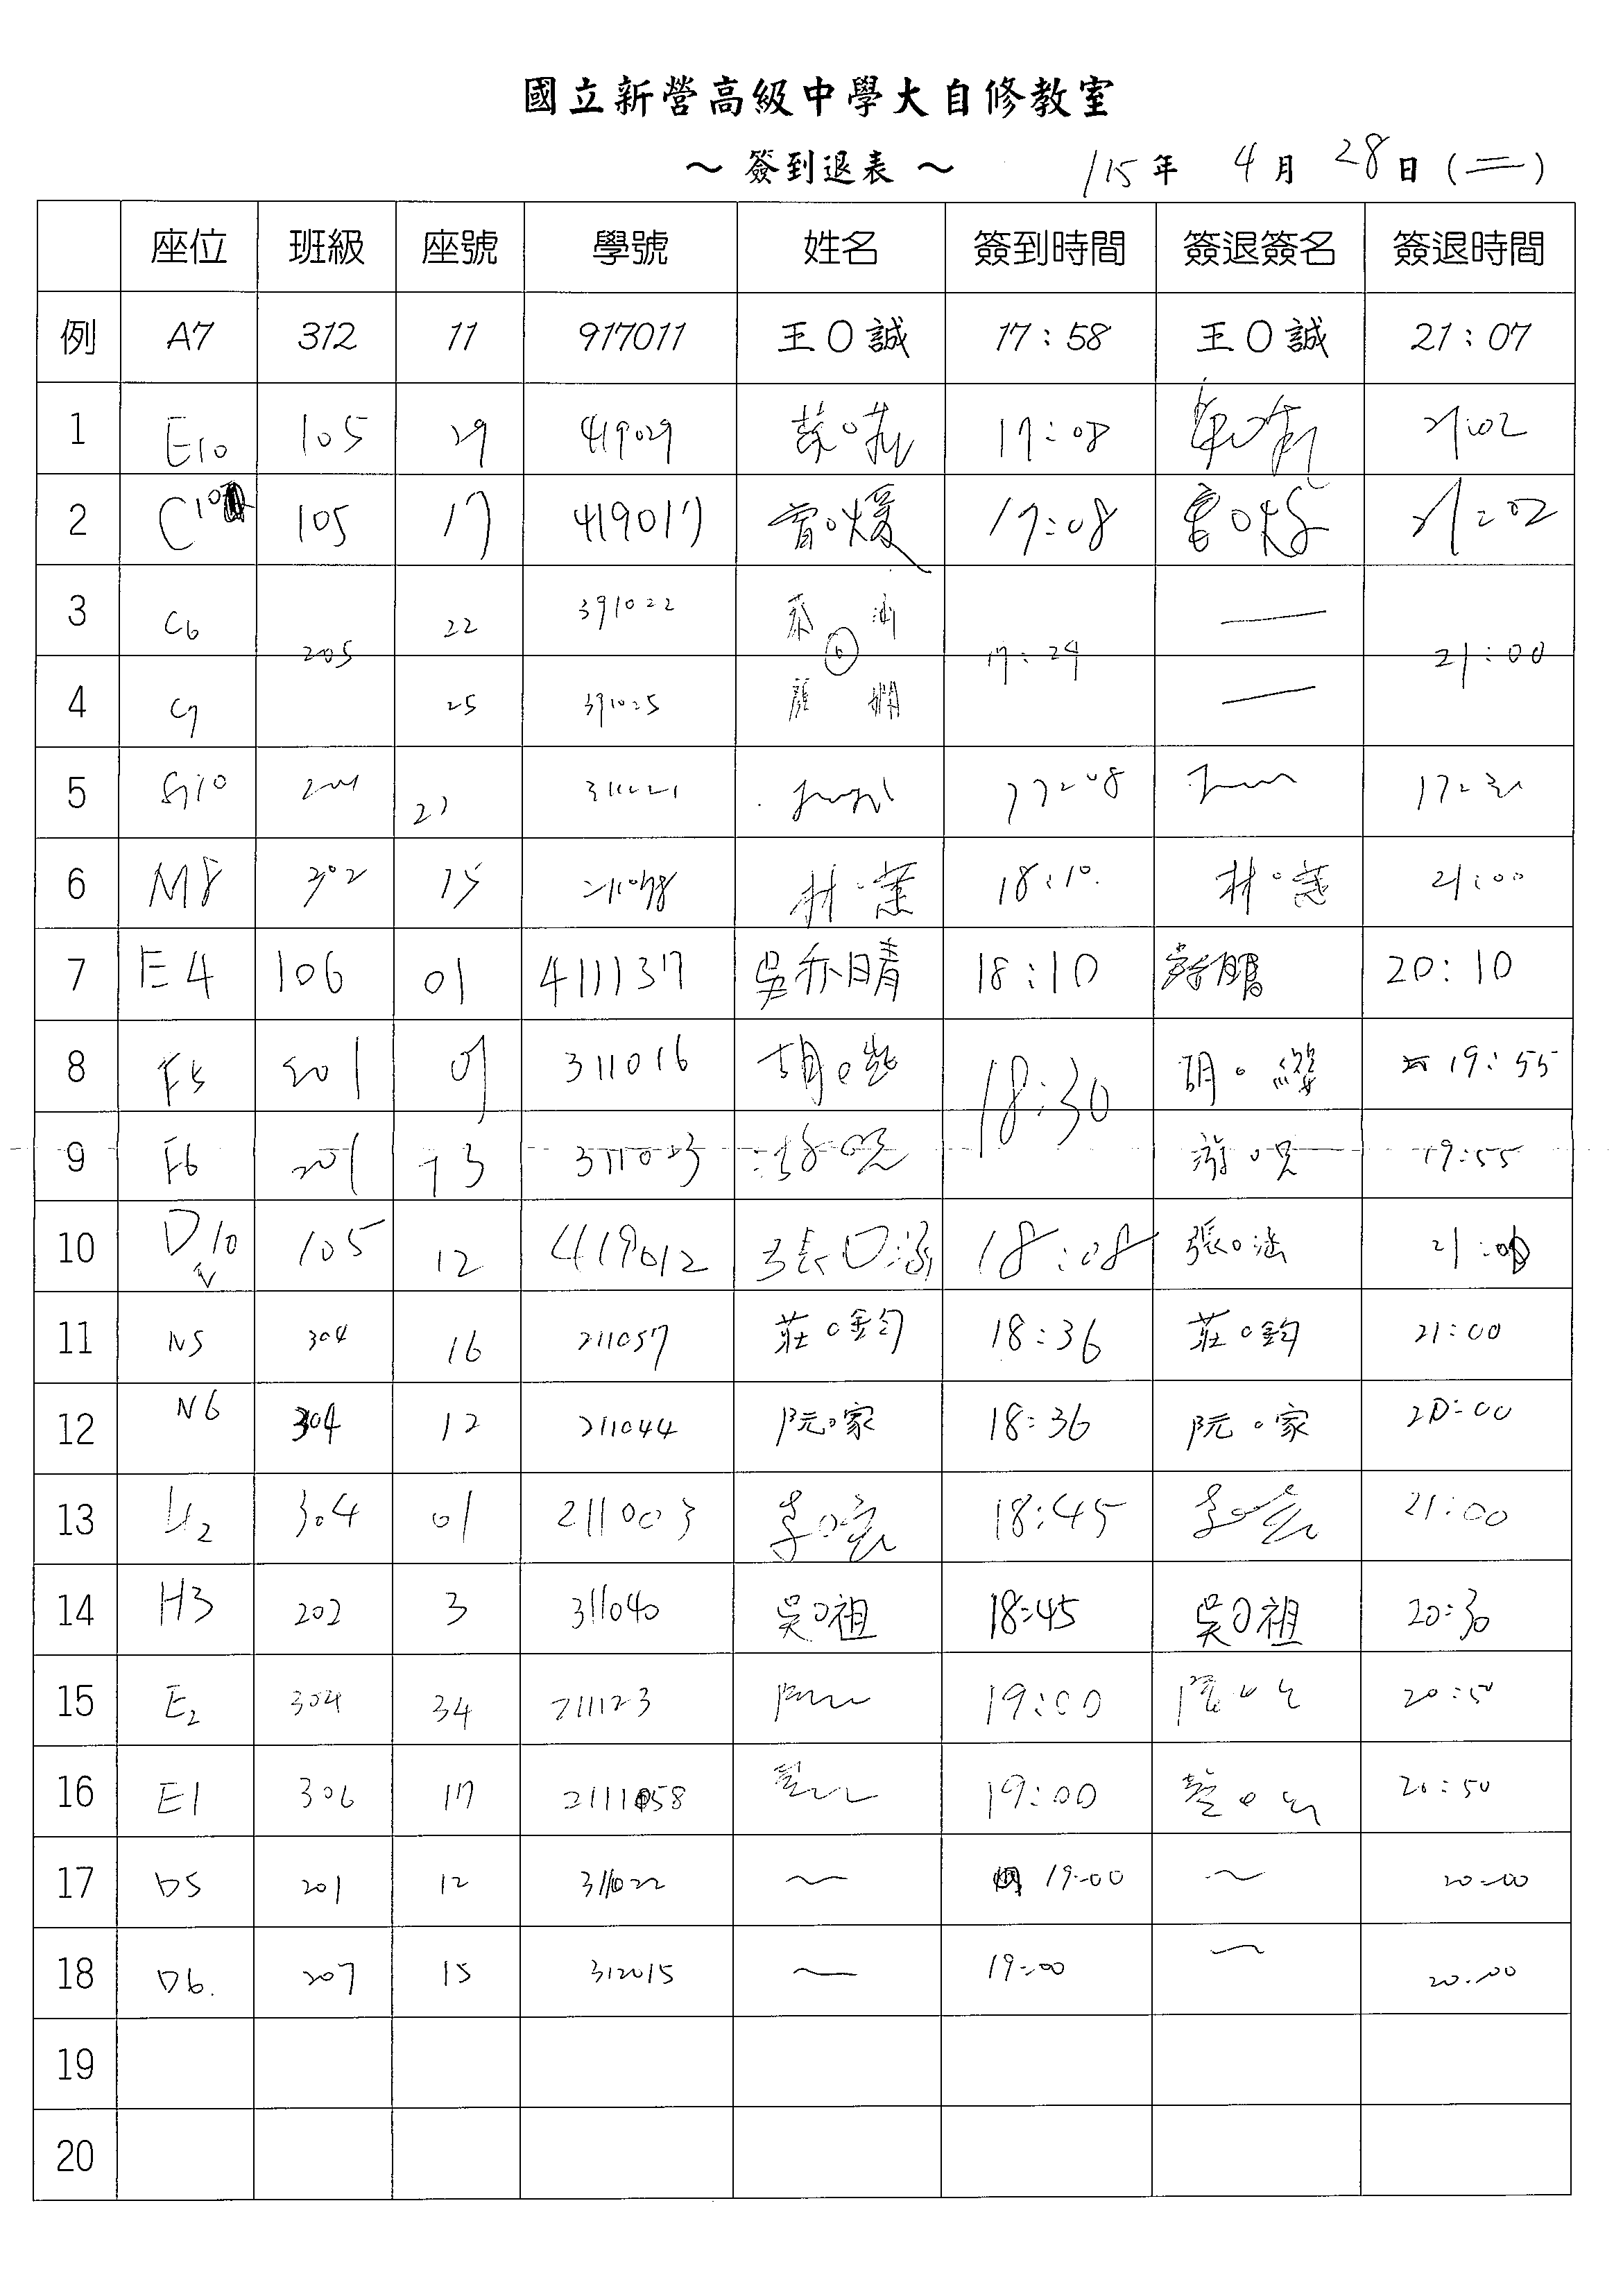 國立新營高級中學大自修教室
～ 簽到退表 ～ 115年 4月 28日(二)
座位 班級 座號 學號 姓名 簽到時間 簽退簽名 簽退時間
例 A7 312 11 917011 王O誠 17:58 王O誠 21:07
1 E10 105 29 419029 17:08 21:02
2 C10 105 17 419017 曾O煖 17:08 21:02
3 C6 205 22 391022 17:29 — 21:00
4 C7 25 391025 —
5 21 17:08
6 M8 302 15 林O蕙 18:10 林O蕙 21:00
7 E4 106 01 411137 吳亦晴 18:10 20:10
8 F5 201 09 311016 胡O 18:30 胡O纓 19:55
9 F6 201 13 游O 19:55
10 D10 105 12 419012 張O涵 18:08 張O涵 21:00
11 N5 304 16 211057 莊O鈞 18:36 莊O鈞 21:00
12 N6 304 12 211044 阮O家 18:36 阮O家 20:00
13 304 01 211003 李O宸 18:45 21:00
14 H3 202 3 311040 吳O祖 18:45 吳O祖 20:30
15 E2 304 34 211123 19:00 20:50
16 E1 306 17 19:00 20:50
17 D5 201 12 311022 ～ 19:00 ～ 20:00
18 D6. 207 15 312015 ～ 19:00 ～ 20:00
19
20